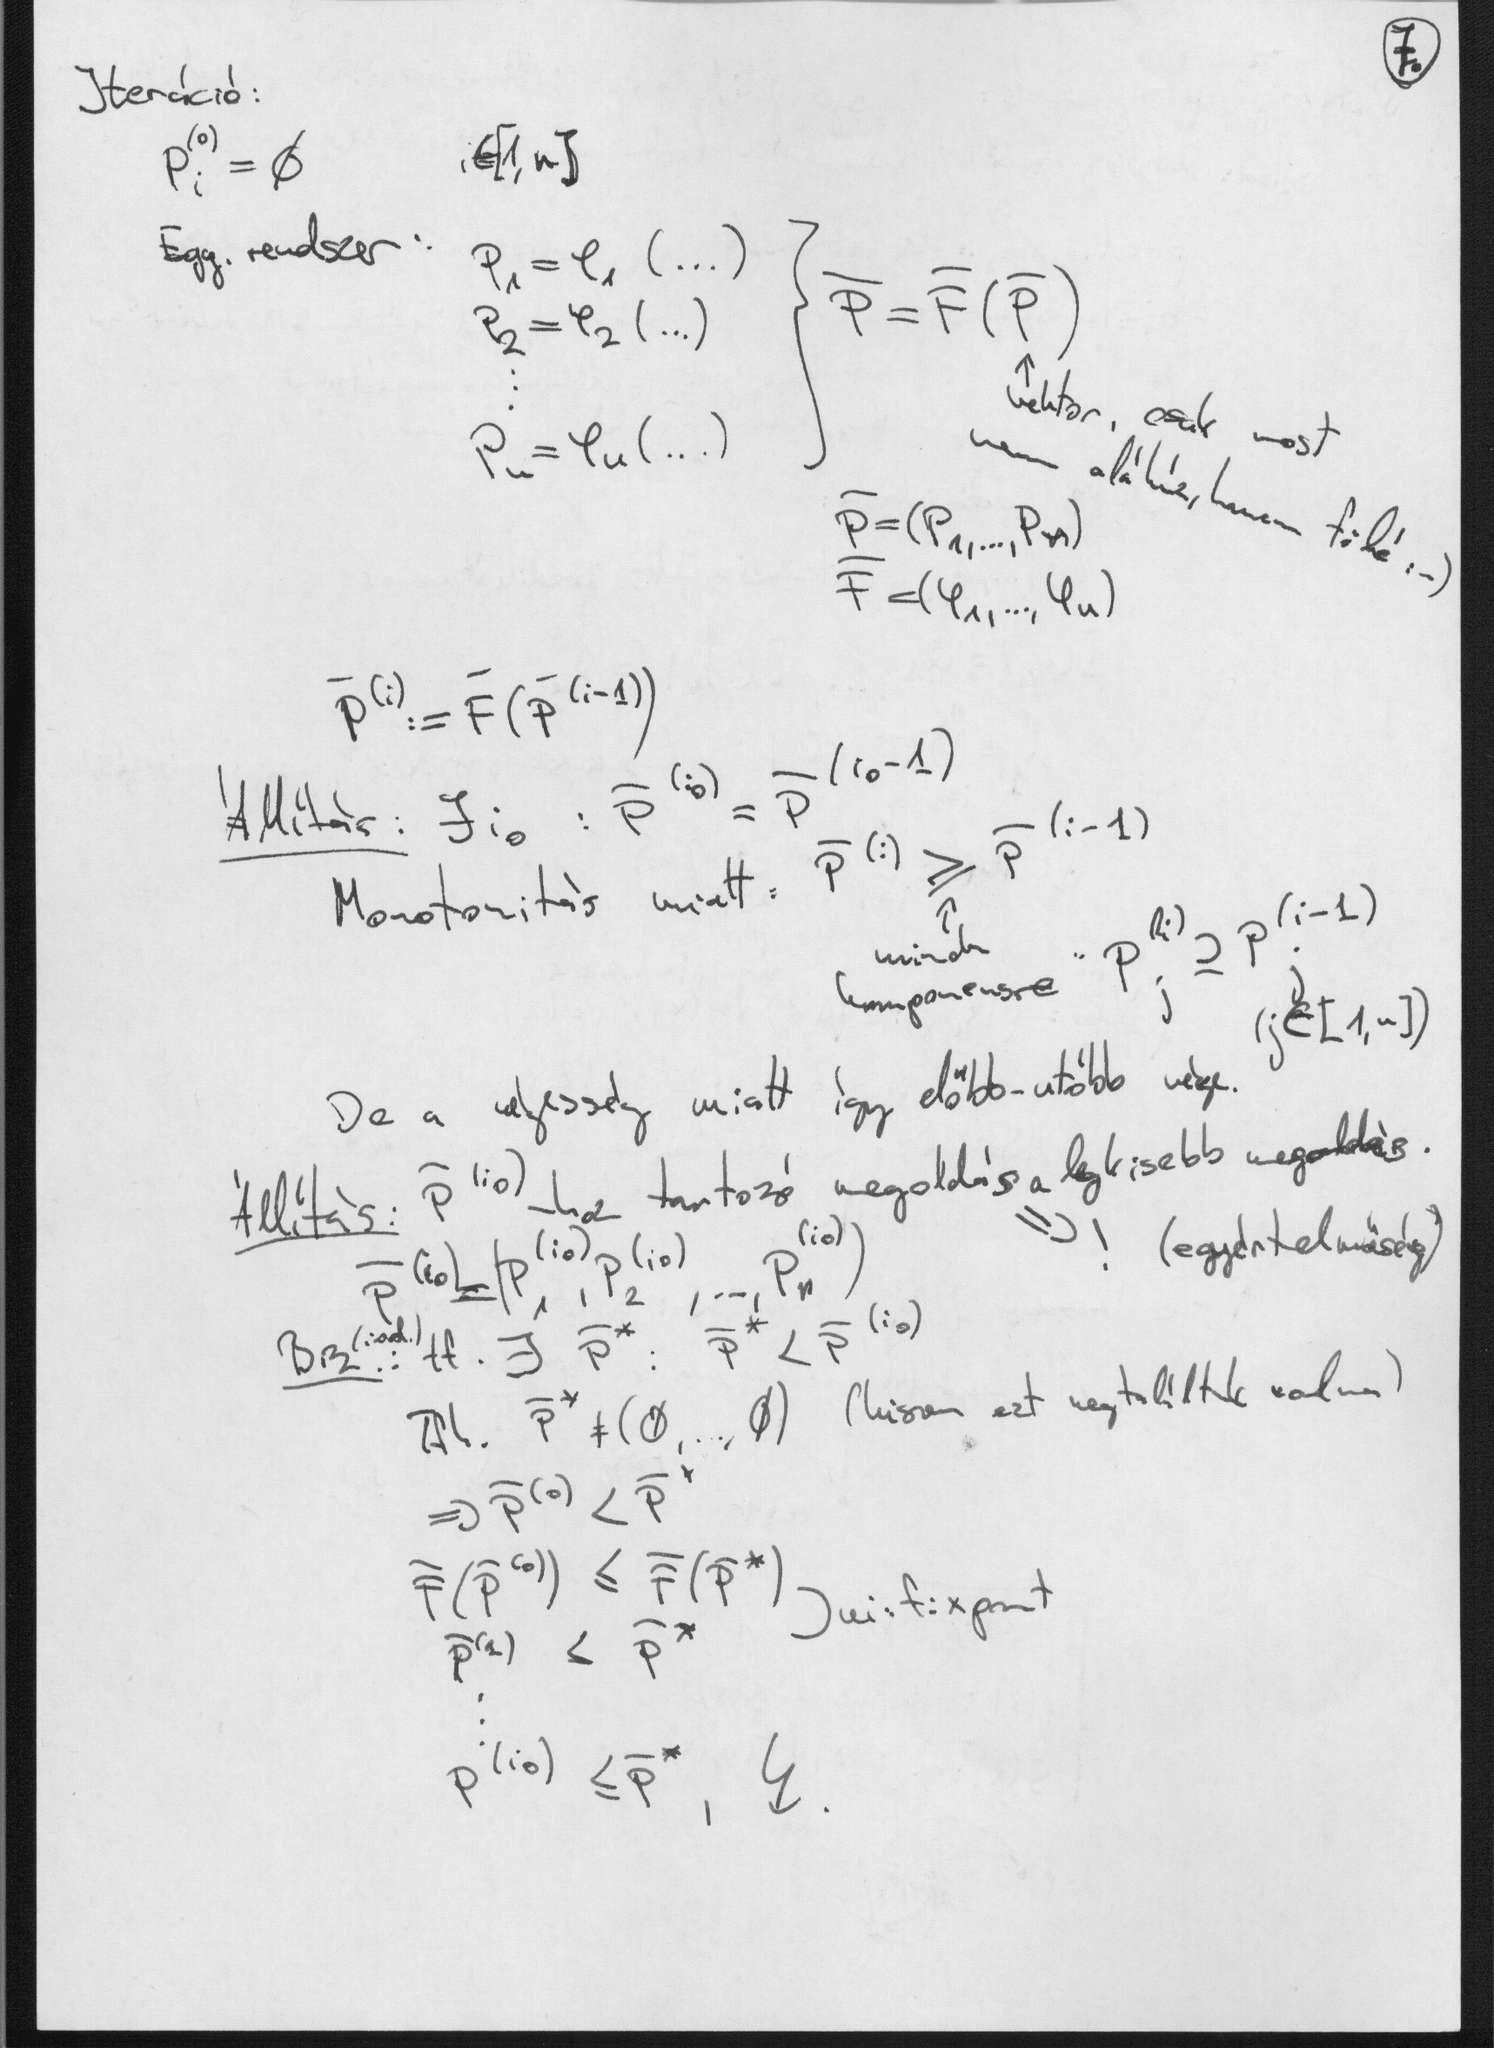 7.
Iteráció:
P_i^(0) = ∅    i∈[1,n]
Egy. rendszer: P_1 = φ_1 (...)
P_2 = φ_2 (...)
⋮
P_n = φ_n (...)
P̅ = F̅(P̅)
↑
vektor, csak most
nem aláhúz, hanem fölé :-)
P̅ = (P_1, ..., P_n)
F̅ = (φ_1, ..., φ_n)
P̅^(i) := F̅(P̅^(i-1))
Állítás: ∃ i_0 : P̅^(i_0) = P̅^(i_0-1)
Monotonitás miatt: P̅^(i) ≥ P̅^(i-1)
↑
minden
komponensre : P_j^(i) ⊇ P_j^(i-1)
(j∈[1,n])
De a végesség miatt így előbb-utóbb vége.
Állítás: P̅^(i_0)-hoz tartozó megoldás a legkisebb megoldás.
⇒ ! (egyértelműség)
P̅^(i_0) = (P_1^(i_0), P_2^(i_0), ..., P_n^(i_0))
Biz (ind.): tf. ∃ P̅* : P̅* < P̅^(i_0)
Tfh. P̅* ≠ (∅, ..., ∅) (hiszen ezt megtaláltuk volna)
⇒ P̅^(0) < P̅*
F̅(P̅^(0)) ≤ F̅(P̅*)
P̅^(1) ≤ P̅*    mi. fixpont
⋮
P^(i_0) ≤ P̅*, ↯.